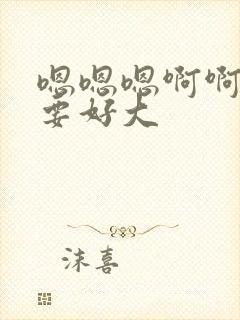 嗯嗯嗯啊啊
要好大
沫喜